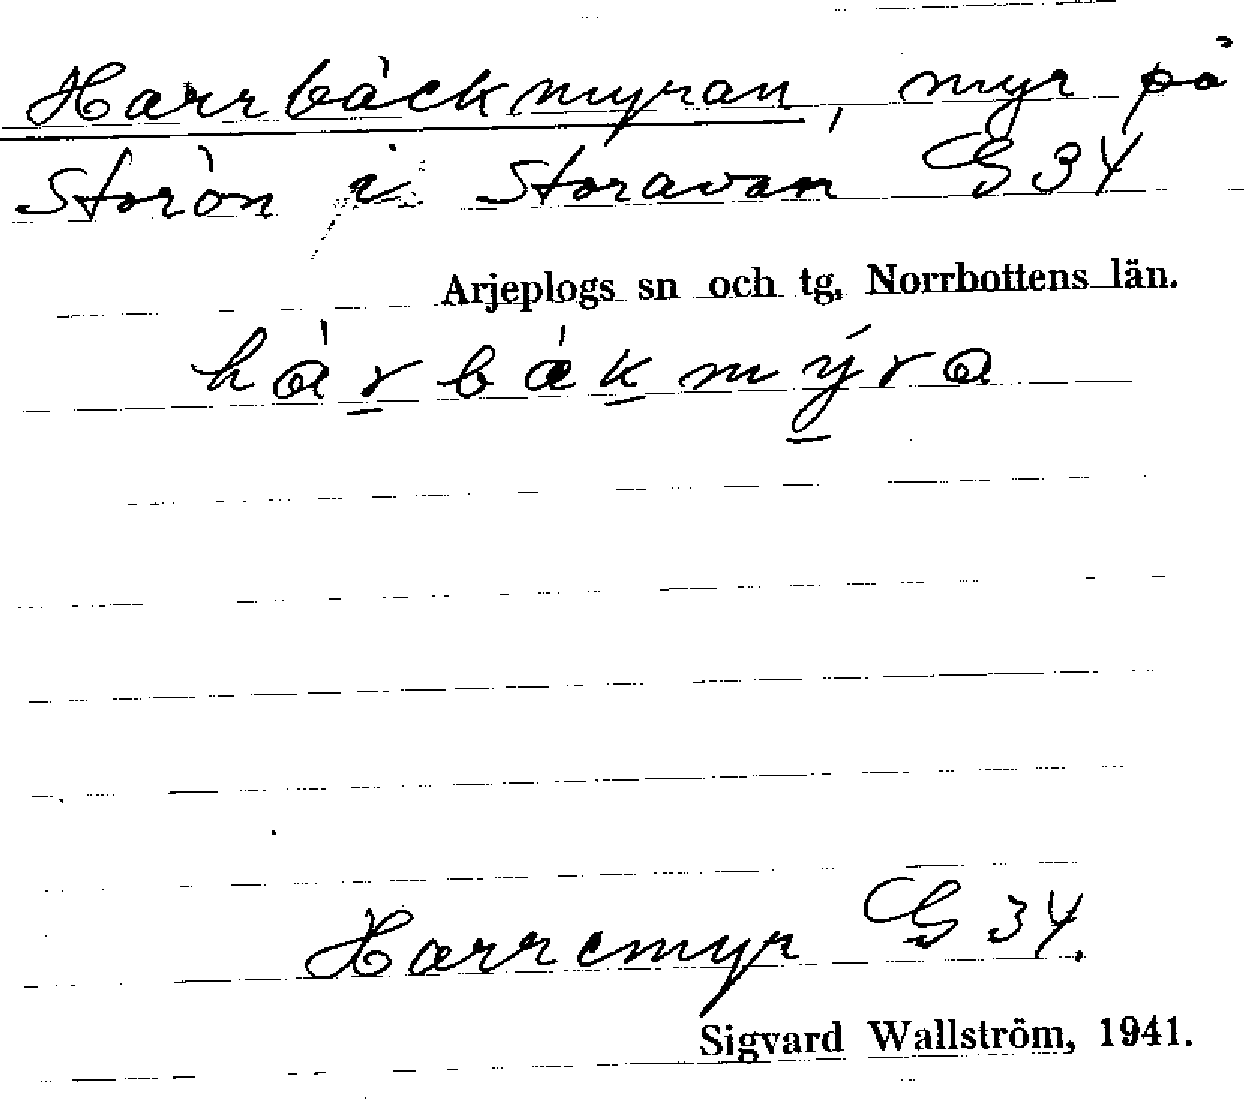 Harrbäckmyran, myr på
Storön i Storavan G 34
Arjeplogs sn och tg, Norrbottens län.
hárbækmýra
Harremyr G 34.
Sigvard Wallström, 1941.